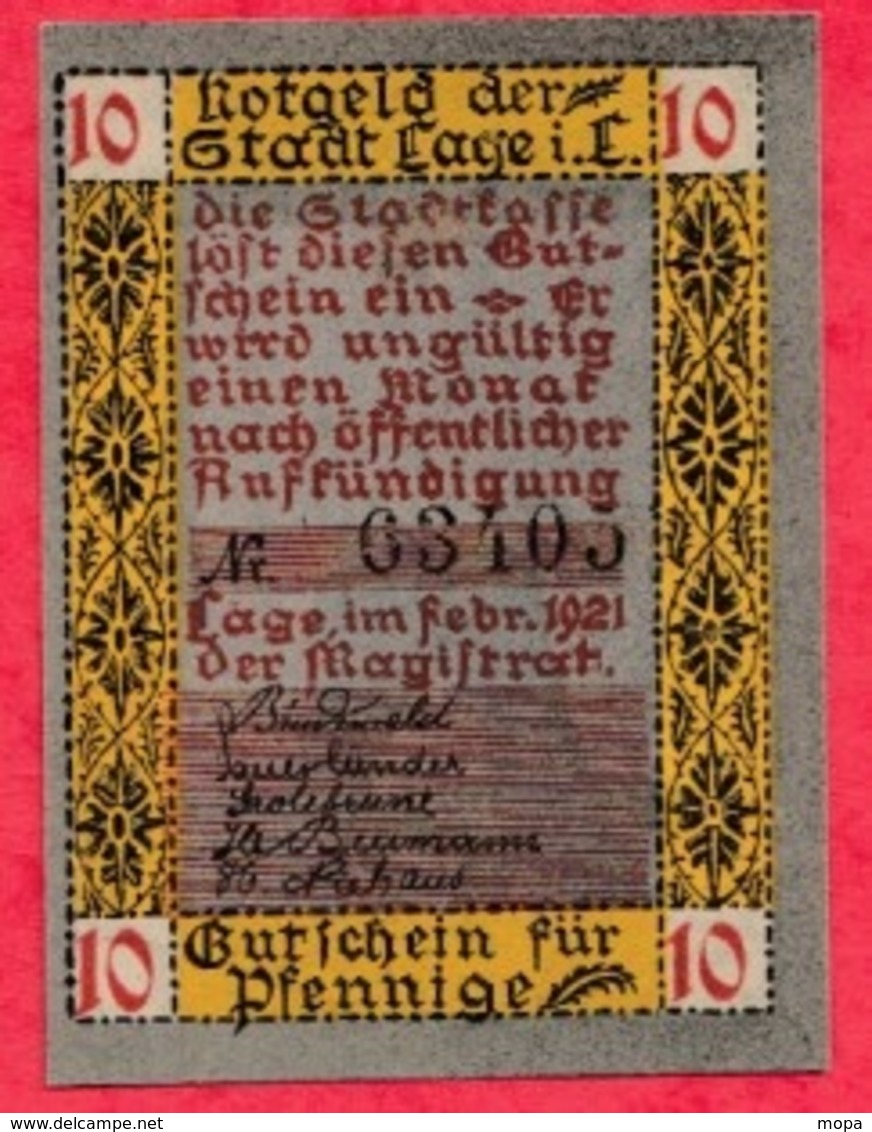 10 Notgeld der 10
Stadt Lage i. L.
die Stadtkasse
löst diesen Gut-
schein ein Er
wird ungültig
einen Monat
nach öffentlicher
Aufkündigung
Nr. 63405
Lage, im Febr. 1921
der Magistrat.
10 Gutschein für 10
Pfennige
www.delcampe.net
mopa